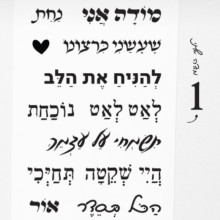 מוֹדָה אֲנִי נחת
שעשני כרצונו
לְהַנִּיחַ אֶת הַלֵּב
לְאַט לְאַט נוֹכַחַת
תשמחי על עצמך
הֲיִי שְׁקֵטָה תְּחַיְּכִי
הַכֹּל בְּסֵדֶר אוֹר
1